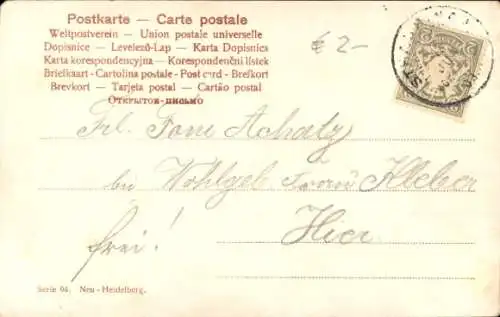 Postkarte — Carte postale
Weltpostverein — Union postale universelle
Dopisnice — Levelező-Lap — Karta Dopisnica
Karta korespondencyjna — Korespondenční lístek
Briefkaart - Cartolina postale - Post card - Brefkort
Brevkort — Tarjeta postal — Cartão postal
Открытое-письмо
€ 2-
Frl. Toni Achatz
bei Wohlgeb. Frau Kleber
frei! Hier
Serie 94. Neu-Heidelberg.